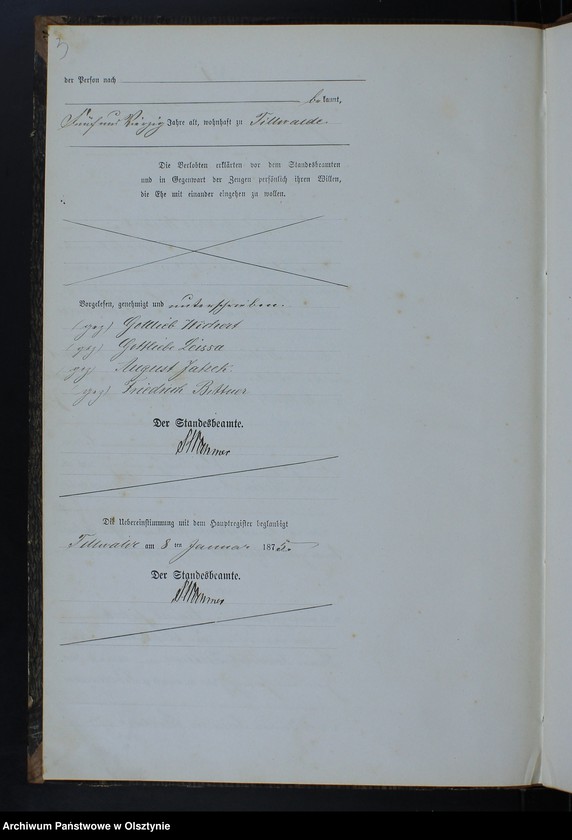 5
der Person nach
bekannt,
Fünf und Vierzig Jahre alt, wohnhaft zu Tillwalde.
Die Verlobten erklärten vor dem Standesbeamten
und in Gegenwart der Zeugen persönlich ihren Willen,
die Ehe mit einander eingehen zu wollen.
Vorgelesen, genehmigt und unterschrieben.
(gez) Gottlieb
(gez) Gottliebe
(gez) August
(gez) Friedrich Bittner
Der Standesbeamte.
Die Uebereinstimmung mit dem Hauptregister beglaubigt
Tillwalde am 8 ten Januar 1875.
Der Standesbeamte.
Archiwum Państwowe w Olsztynie